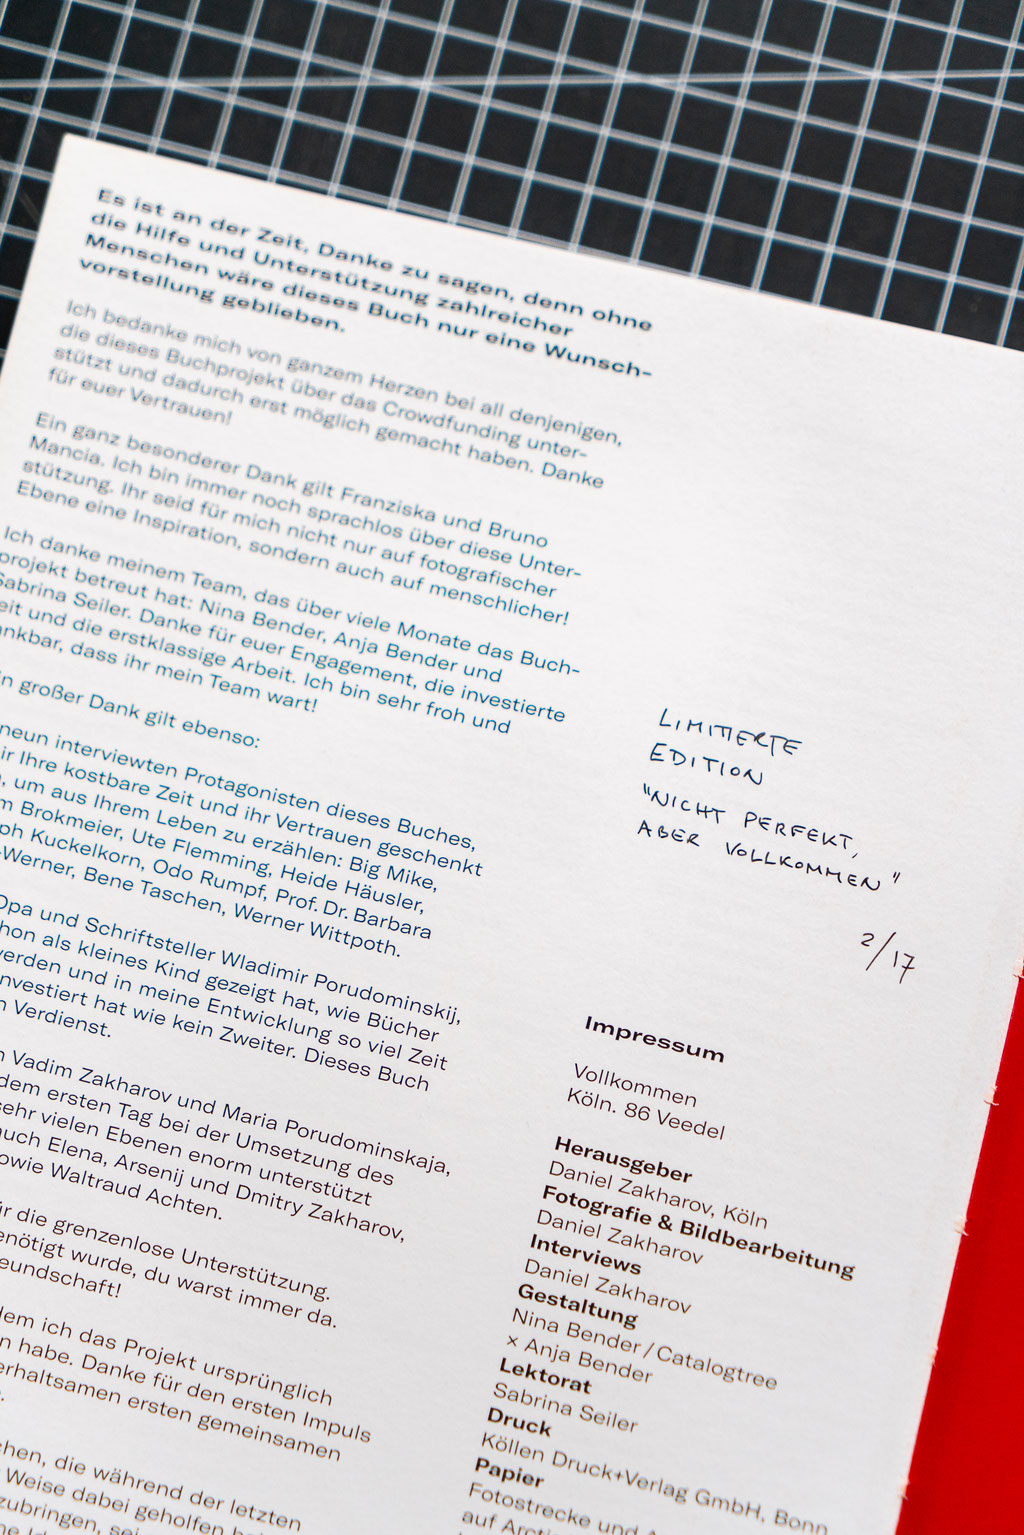 Es ist an der Zeit, Danke zu sagen, denn ohne
die Hilfe und Unterstützung zahlreicher
Menschen wäre dieses Buch nur eine Wunsch-
vorstellung geblieben.
Ich bedanke mich von ganzem Herzen bei all denjenigen,
die dieses Buchprojekt über das Crowdfunding unter-
stützt und dadurch erst möglich gemacht haben. Danke
für euer Vertrauen!
Ein ganz besonderer Dank gilt Franziska und Bruno
Mancia. Ich bin immer noch sprachlos über diese Unter-
stützung. Ihr seid für mich nicht nur auf fotografischer
Ebene eine Inspiration, sondern auch auf menschlicher!
Ich danke meinem Team, das über viele Monate das Buch-
projekt betreut hat: Nina Bender, Anja Bender und
Sabrina Seiler. Danke für euer Engagement, die investierte
eit und die erstklassige Arbeit. Ich bin sehr froh und
ankbar, dass ihr mein Team wart!
in großer Dank gilt ebenso:
neun interviewten Protagonisten dieses Buches,
ir Ihre kostbare Zeit und ihr Vertrauen geschenkt
, um aus Ihrem Leben zu erzählen: Big Mike,
m Brokmeier, Ute Flemming, Heide Häusler,
ph Kuckelkorn, Odo Rumpf, Prof. Dr. Barbara
-Werner, Bene Taschen, Werner Wittpoth.
Opa und Schriftsteller Wladimir Porudominskij,
hon als kleines Kind gezeigt hat, wie Bücher
werden und in meine Entwicklung so viel Zeit
investiert hat wie kein Zweiter. Dieses Buch
n Verdienst.
n Vadim Zakharov und Maria Porudominskaja,
dem ersten Tag bei der Umsetzung des
sehr vielen Ebenen enorm unterstützt
auch Elena, Arsenij und Dmitry Zakharov,
owie Waltraud Achten.
ür die grenzenlose Unterstützung.
enötigt wurde, du warst immer da.
eundschaft!
dem ich das Projekt ursprünglich
n habe. Danke für den ersten Impuls
erhaltsamen ersten gemeinsamen
chen, die während der letzten
Weise dabei geholfen
zubringen,
LIMITIERTE
EDITION
"NICHT PERFEKT,
ABER VOLLKOMMEN"
2/17
Impressum
Vollkommen
Köln. 86 Veedel
Herausgeber
Daniel Zakharov, Köln
Fotografie & Bildbearbeitung
Daniel Zakharov
Interviews
Daniel Zakharov
Gestaltung
Nina Bender / Catalogtree
× Anja Bender
Lektorat
Sabrina Seiler
Druck
Köllen Druck+Verlag GmbH, Bonn
Papier
Fotostrecke und
auf